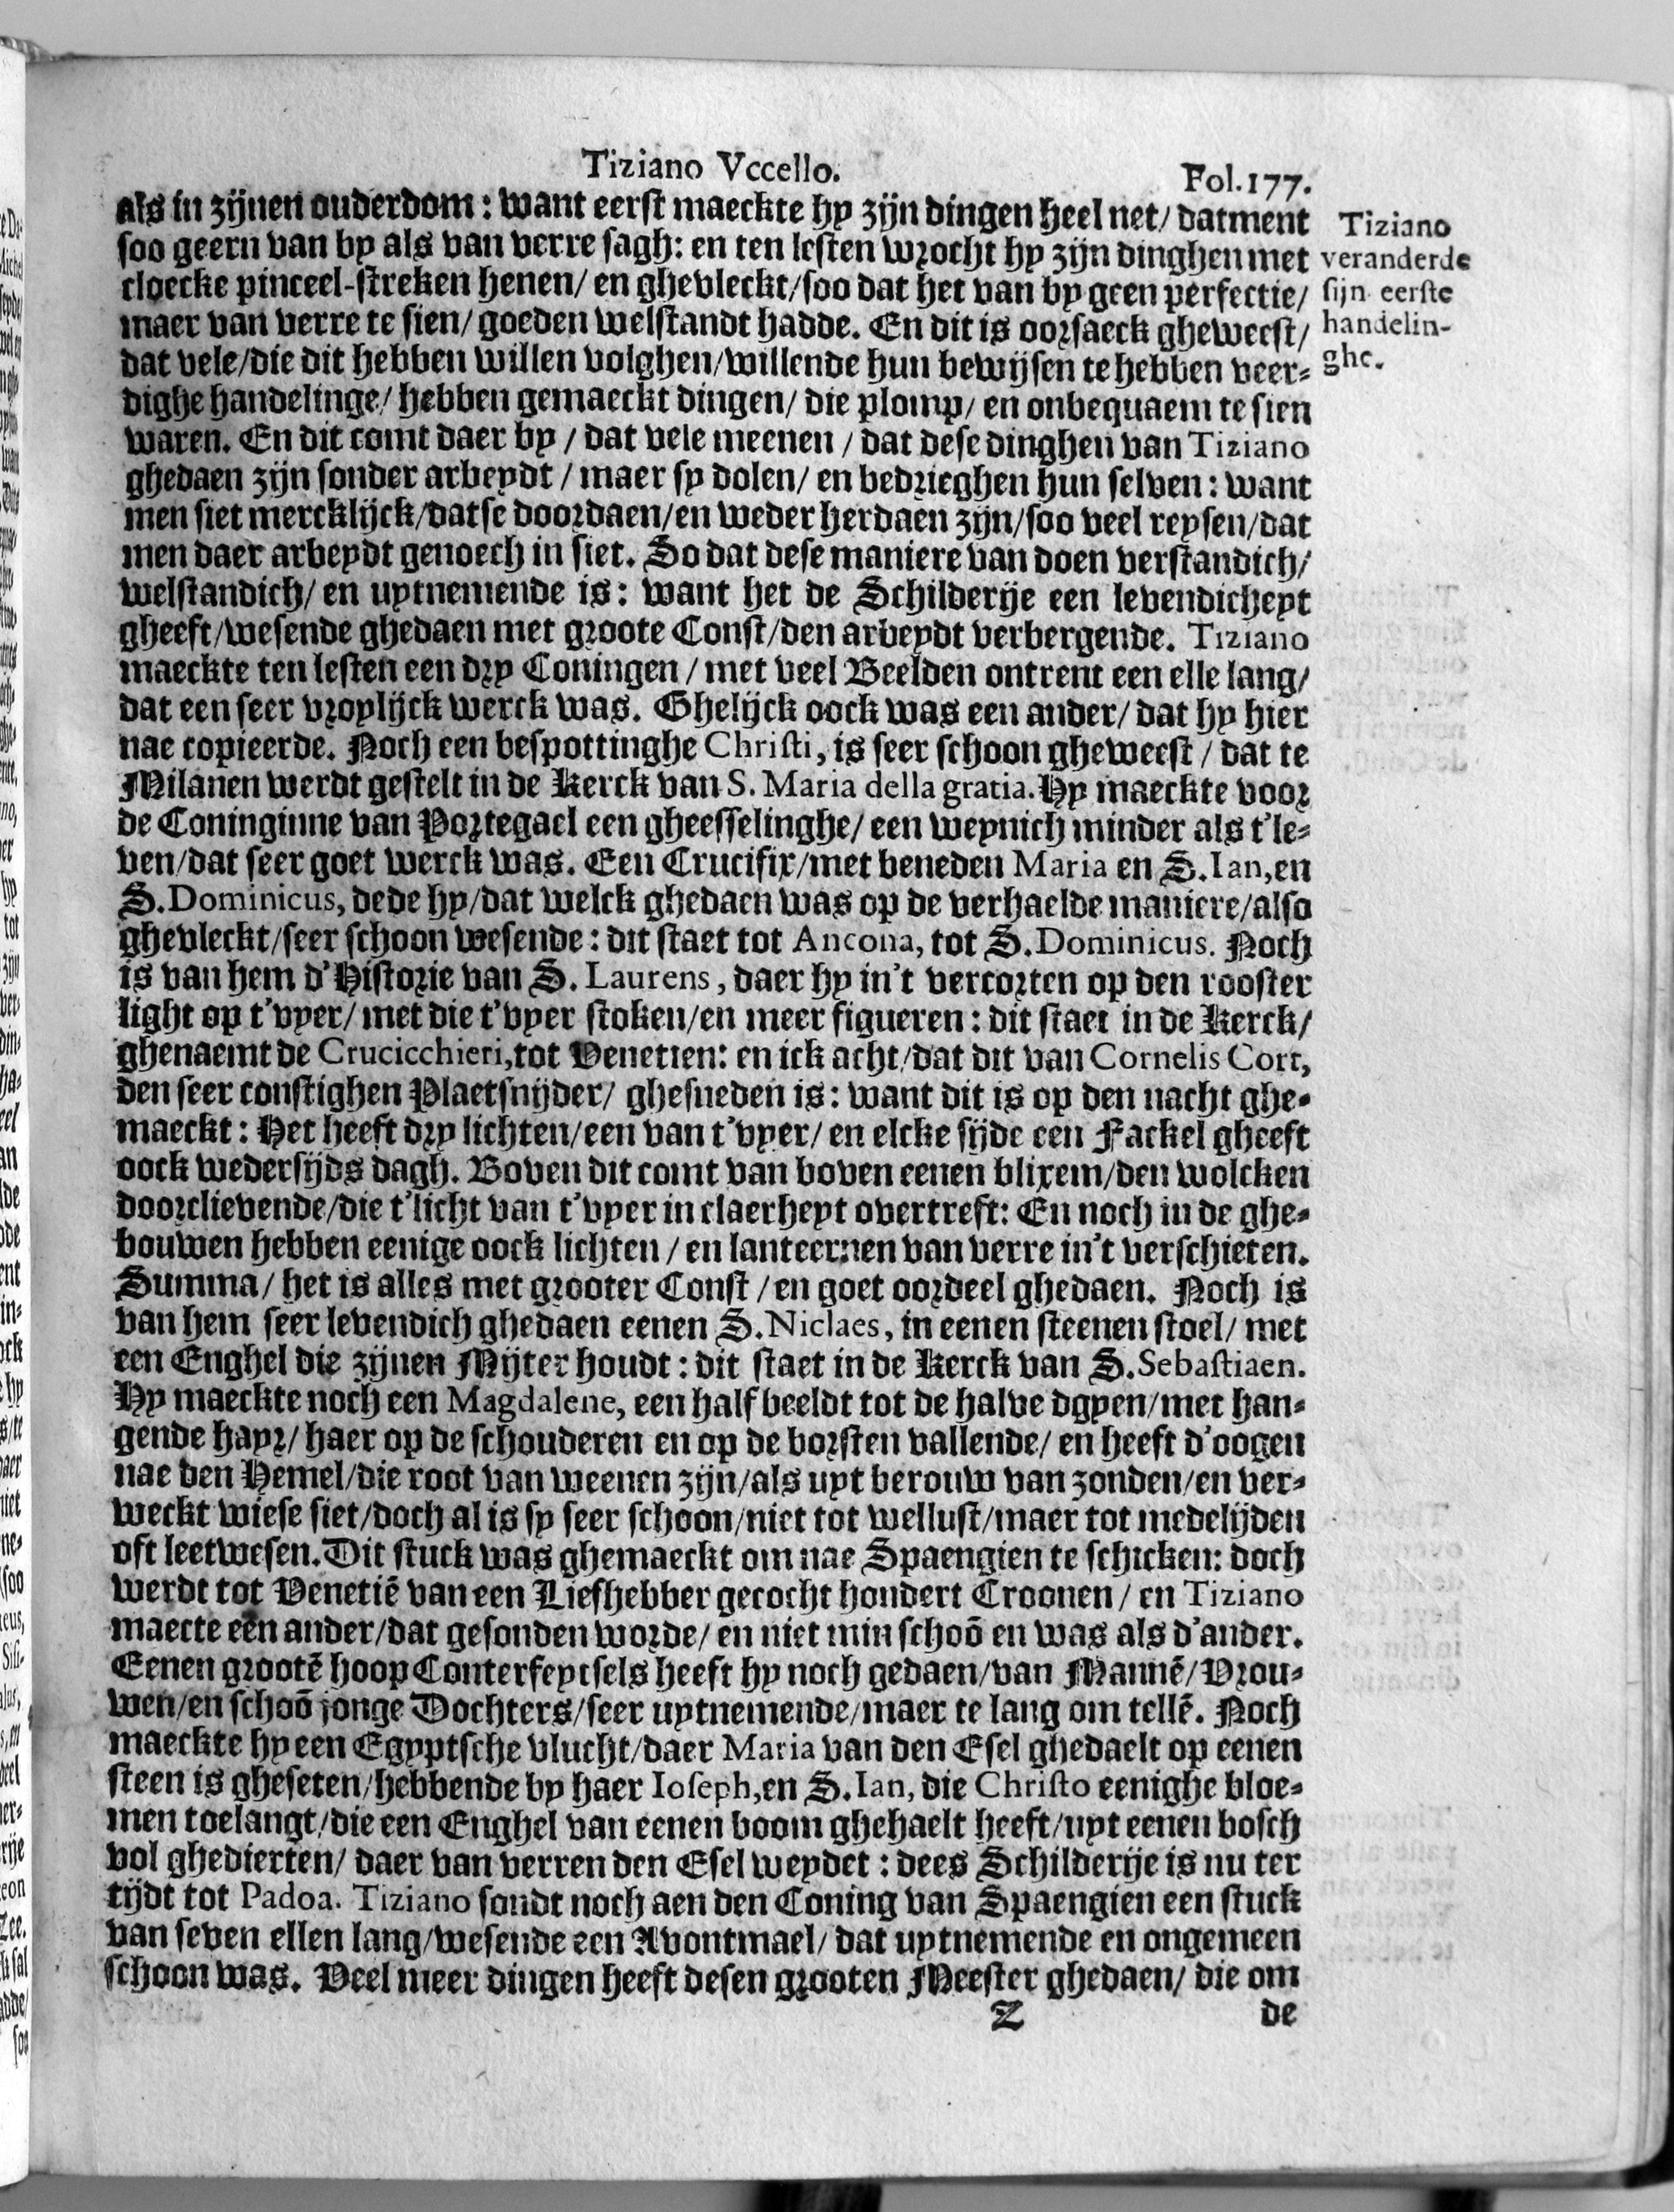 Tiziano Vccello.
Fol.177.
als in zijnen ouderdom: want eerst maeckte hy zijn dingen heel net/ datment
soo geern van by als van verre sagh: en ten lesten wrocht hy zijn dinghen met
cloecke pinceel-streken henen/ en ghevleckt/soo dat het van by geen perfectie/
maer van verre te sien/ goeden welstandt hadde. En dit is oorsaeck gheweest/
dat vele/die dit hebben willen volghen/willende hun bewijsen te hebben veer-
dighe handelinge/ hebben gemaeckt dingen/ die plomp/ en onbequaem te sien
waren. En dit comt daer by / dat vele meenen / dat dese dinghen van Tiziano
ghedaen zijn sonder arbeydt / maer sy dolen/ en bedrieghen hun selven: want
men siet mercklijck/datse doordaen/en weder herdaen zijn/soo veel reysen/dat
men daer arbeydt genoech in siet. So dat dese maniere van doen verstandich/
welstandich/ en uytnemende is: want het de Schilderije een levendicheyt
gheeft/wesende ghedaen met groote Const/den arbeydt verbergende. Tiziano
maeckte ten lesten een dry Coningen / met veel Beelden ontrent een elle lang/
dat een seer vroylijck werck was. Ghelijck oock was een ander/ dat hy hier
nae copieerde. Noch een bespottinghe Christi, is seer schoon gheweest / dat te
Milanen werdt gestelt in de Kerck van S. Maria della gratia. Hy maeckte voor
de Coninginne van Portegael een gheesselinghe/ een weynich minder als t'le-
ven/dat seer goet werck was. Een Crucifix/met beneden Maria en S.Ian,en
S.Dominicus, dede hy/dat welck ghedaen was op de verhaelde maniere/also
ghevleckt/seer schoon wesende: dit staet tot Ancona, tot S.Dominicus. Noch
is van hem d'Historie van S. Laurens, daer hy in't vercorten op den rooster
light op t'vyer/ met die t'vyer stoken/en meer figueren: dit staet in de Kerck/
ghenaemt de Crucicchieri,tot Venetien: en ick acht/dat dit van Cornelis Cort,
den seer constighen Plaetsnijder/ ghesneden is: want dit is op den nacht ghe-
maeckt: Het heeft dry lichten/een van t'vyer/ en elcke sijde een Fackel gheeft
oock wedersijds dagh. Boven dit comt van boven eenen blixem/den wolcken
doorclievende/die t'licht van t'vyer in claerheyt overtreft: En noch in de ghe-
bouwen hebben eenige oock lichten / en lanteernen van verre in't verschieten.
Summa/ het is alles met grooter Const /en goet oordeel ghedaen. Noch is
van hem seer levendich ghedaen eenen S.Niclaes, in eenen steenen stoel/ met
een Enghel die zijnen Mijter houdt: dit staet in de Kerck van S.Sebastiaen.
Hy maeckte noch een Magdalene, een half beeldt tot de halve dgyen/met han-
gende hayr/ haer op de schouderen en op de borsten vallende/ en heeft d'oogen
nae den Hemel/die root van weenen zijn/als uyt berouw van zonden/en ver-
weckt wiese siet/doch al is sy seer schoon/niet tot wellust/maer tot medelijden
oft leetwesen. Dit stuck was ghemaeckt om nae Spaengien te schicken: doch
werdt tot Venetiē van een Liefhebber gecocht hondert Croonen / en Tiziano
maecte een ander/dat gesonden worde/ en niet min schoō en was als d'ander.
Eenen grootē hoop Conterfeytsels heeft hy noch gedaen/van Mannē/Vrou-
wen/en schoō jonge Dochters/seer uytnemende/maer te lang om tellē. Noch
maeckte hy een Egyptsche vlucht/daer Maria van den Esel ghedaelt op eenen
steen is gheseten/hebbende by haer Ioseph,en S.Ian, die Christo eenighe bloe-
men toelangt/die een Enghel van eenen boom ghehaelt heeft/uyt eenen bosch
vol ghedierten/ daer van verren den Esel weydet: dees Schilderije is nu ter
tijdt tot Padoa. Tiziano sondt noch aen den Coning van Spaengien een stuck
van seven ellen lang/wesende een Avontmael/ dat uytnemende en ongemeen
schoon was. Veel meer dingen heeft desen grooten Meester ghedaen/ die om
Z
de
Tiziano
veranderde
sijn eerste
handelin-
ghe.